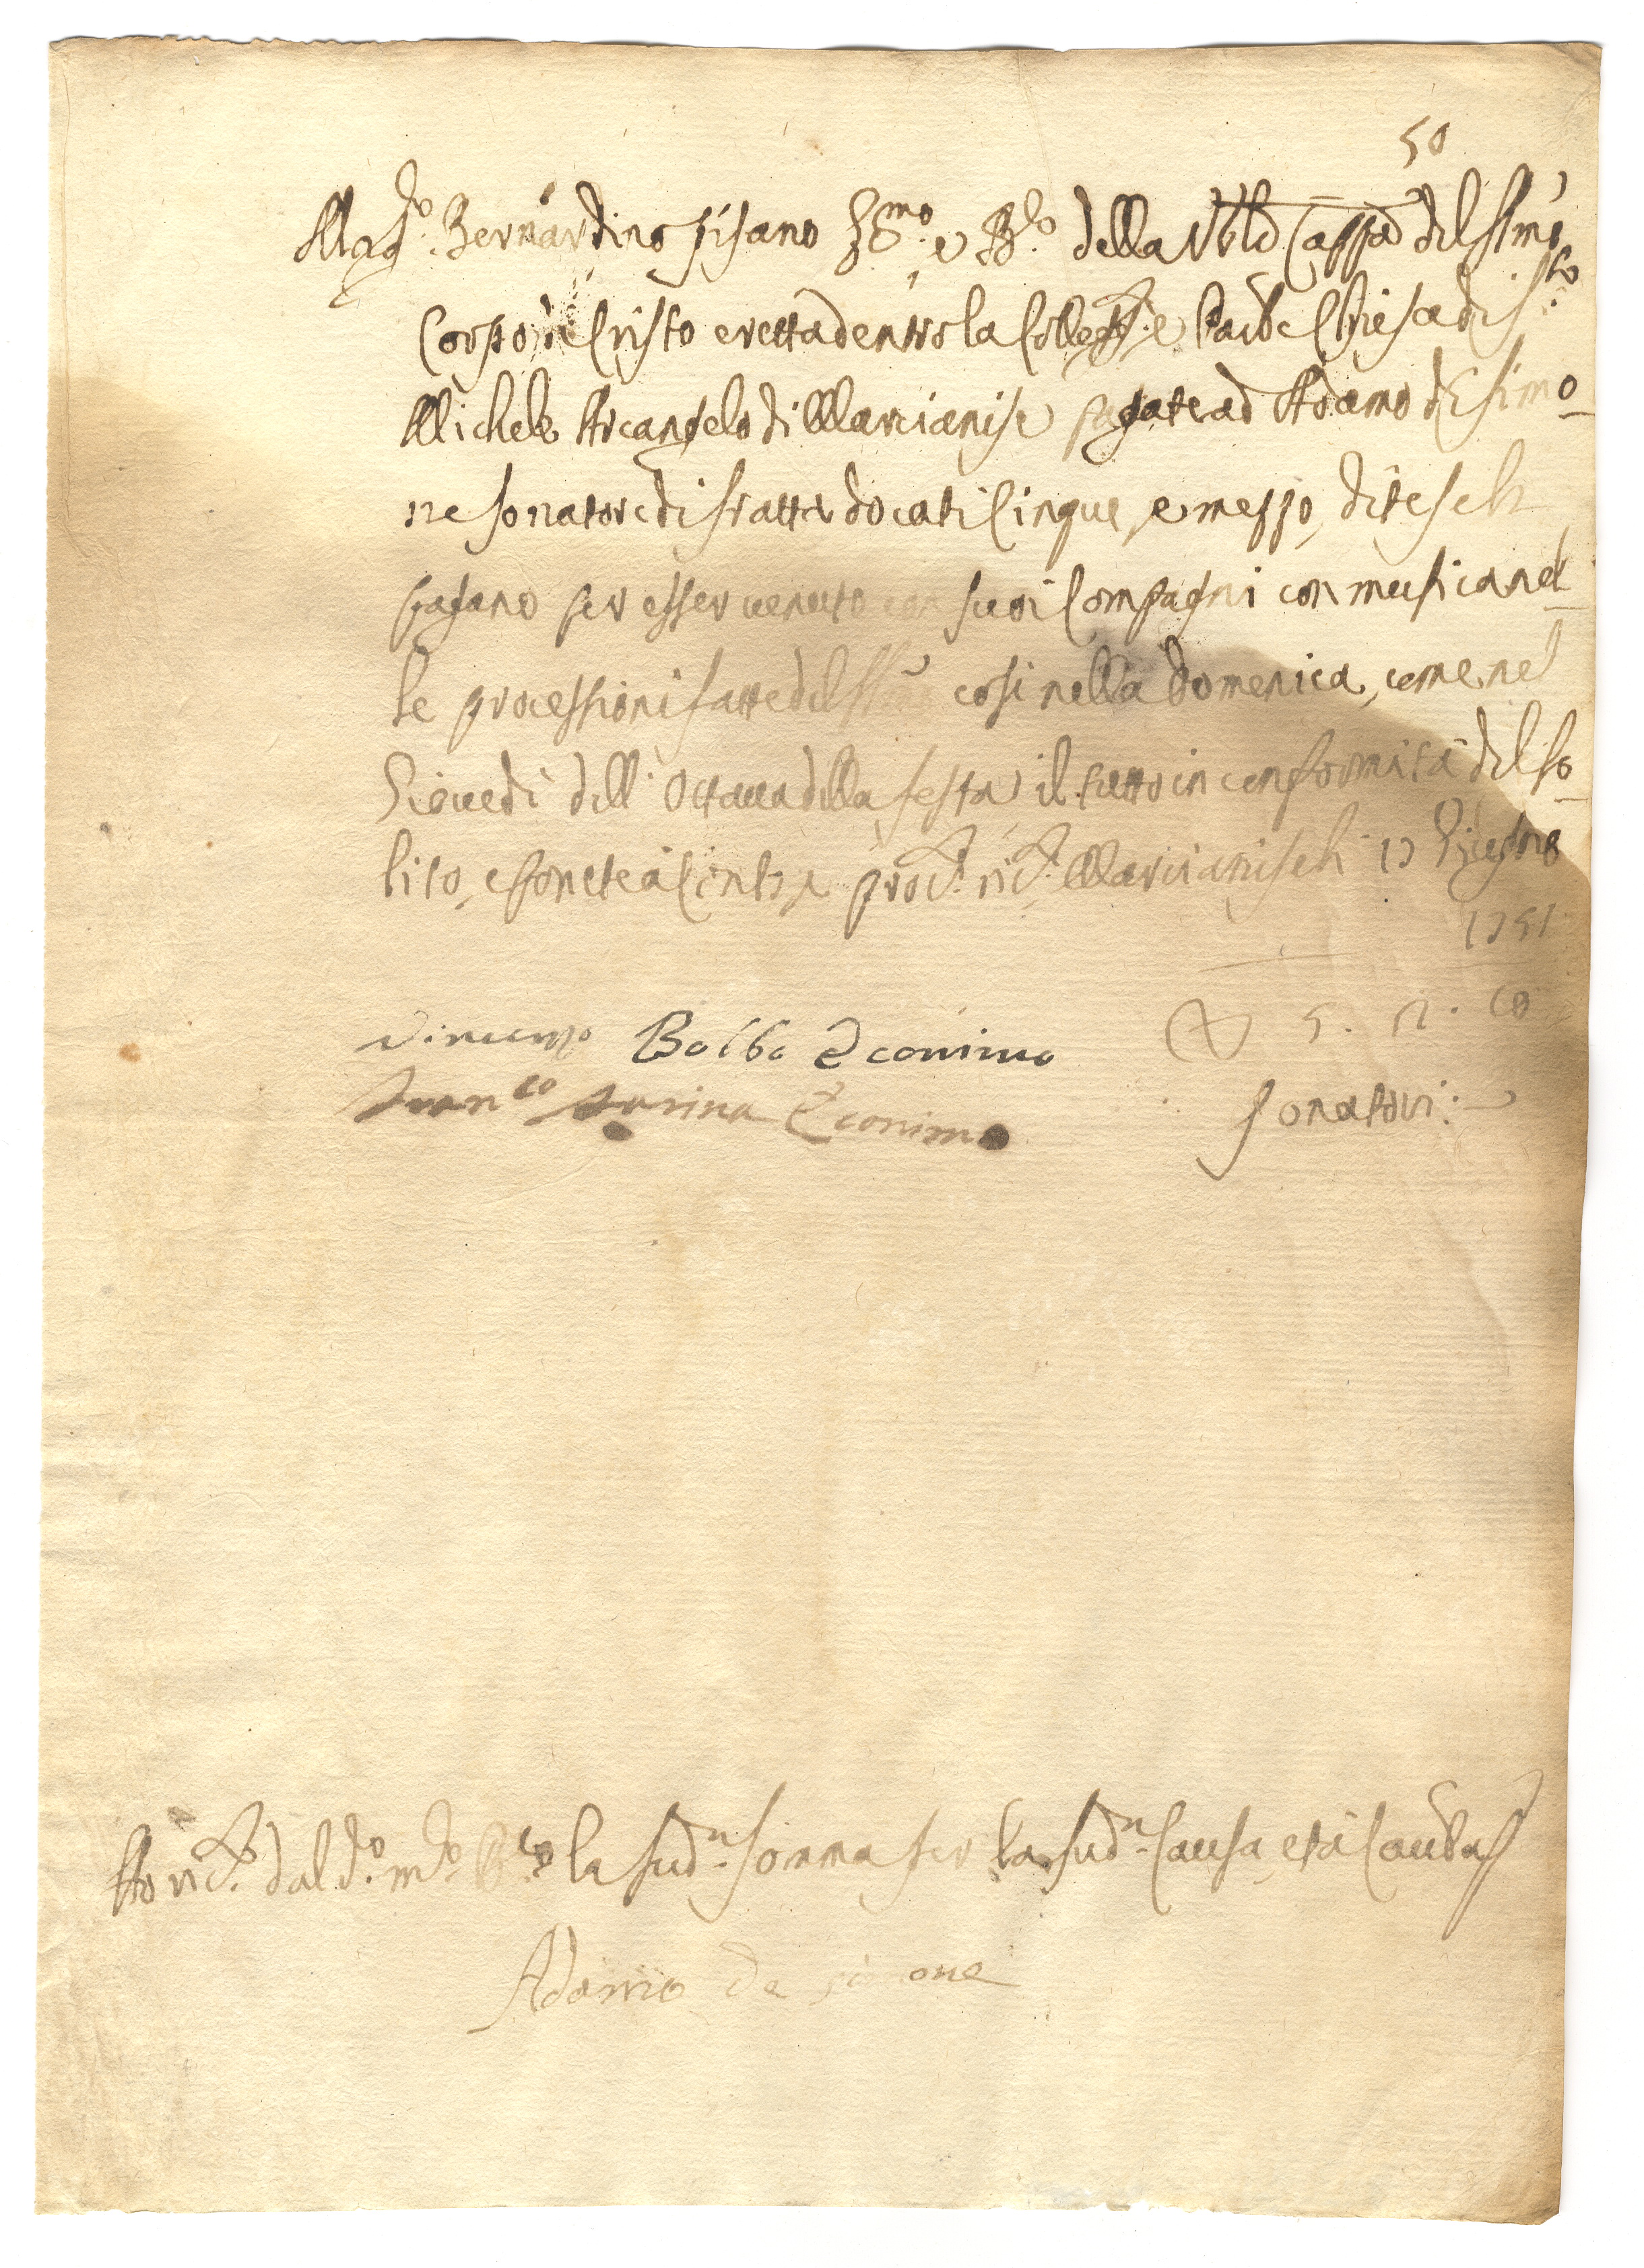 50
Mag.co Bernardino Pisano Ec.mo e B.lo della Ven.le Capp.a del SS.mo
Corpo di Cristo eretta dentro la Colleg.ta e Par.le Chiesa di S.to
Michele Arcangelo di Marcianise pagate ad Adamo di Simo-
ne sonatore di fratta docati Cinque, e mezzo, dite seli
pagano per esser venuto con suoi Compagni con musica nel-
le processioni fatte del SS.mo così nella Domenica, come nel
Giovedì dell'Ottava della festa, il tutto in conformità del so-
lito, e ponete a Conto, e proc.a ric.a Marcianise li 17 Giugno
1751
Vincenzo Balbo Economo
Fran.co Farina Economo
D 5. 2. 10
Sonatori:
Ho ric.o dal d.o m.co la sud.a somma per la sud.a Causa, et a Cautela
Adamo de simone